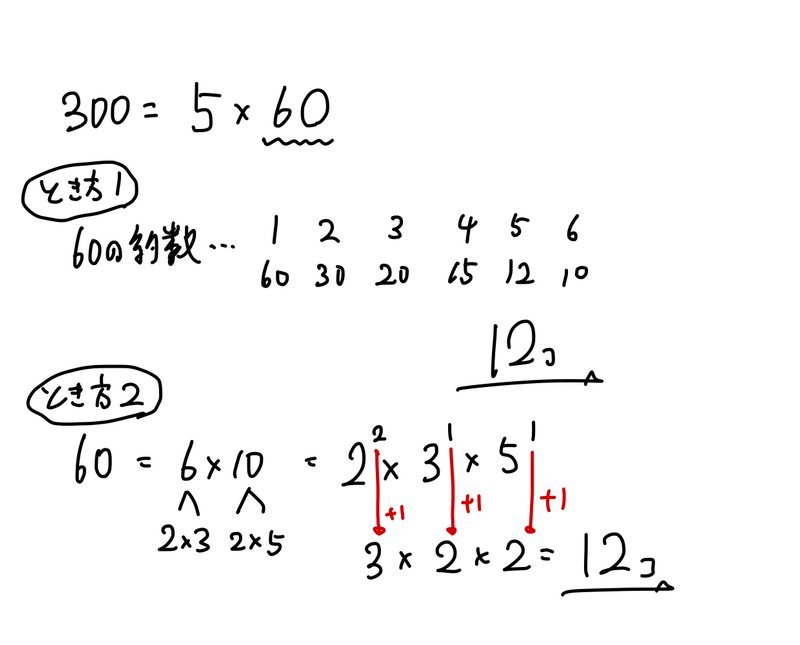 300 = 5 × 60
とき方1
60の約数… 1 2 3 4 5 6
60 30 20 15 12 10
12コ
とき方2
60 = 6 × 10 = 2² × 3¹ × 5¹
+1 +1 +1
2×3 2×5
3 × 2 × 2 = 12コ